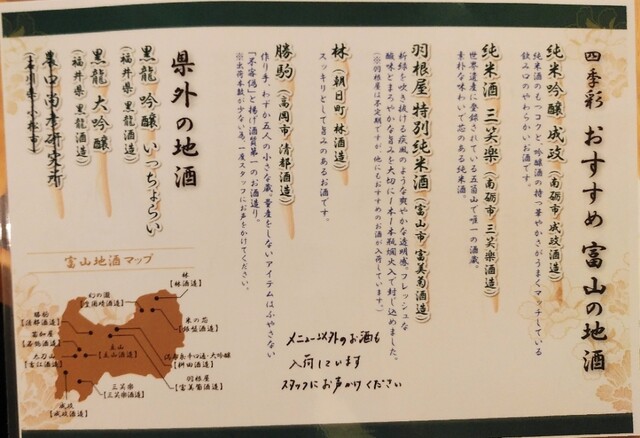 四季彩 おすすめ 富山の地酒
純米吟醸 成政(南砺市 成政酒造)
純米酒のもつコクと、吟醸酒の持つ華やかさがうまくマッチしている
飲み口のやわらかいお酒です。
純米酒 三笑楽(南砺市 三笑楽酒造)
世界遺産に登録されている五箇山で唯一の酒蔵。
素朴な味わいで芯のある純米酒。
羽根屋 特別純米酒(富山市 富美菊酒造)
新緑を吹き抜ける疾風のような爽やかな透明感。フレッシュな
酸味とまろやかな旨みを大切に1本1本瓶燗火入で封じ込めました。
(※羽根屋は不定期ですが、他にもおすすめのお酒が入荷しています。)
林(朝日町 林酒造)
スッキリとして旨みのあるお酒です。
勝駒(高岡市 清都酒造)
作り手、わずか五人の小さな蔵。量産をしないアイテムはふやさない
「不容偽」と掲げ酒質第一のお酒造り。
※出荷本数が少ない為、一度スタッフにお声をかけてください。
メニュー以外のお酒も
入荷しています
スタッフにお声がけください
県外の地酒
黒龍 吟醸 いっちょらい
(福井県 黒龍酒造)
黒龍 大吟醸
(福井県 黒龍酒造)
農口尚彦研究所
(石川県 小松市)
富山地酒マップ
林
【林酒造】
幻の瀧
【皇国晴酒造】
米の芯
勝駒
【清都酒造】
苗加屋
【若鶴酒造】
立山
【立山酒造】
【吉江酒造】
満寿泉 千石通・大吟醸
【桝田酒造】
羽根屋
【富美菊酒造】
三笑楽
【三笑楽酒造】
成政
【成政酒造】